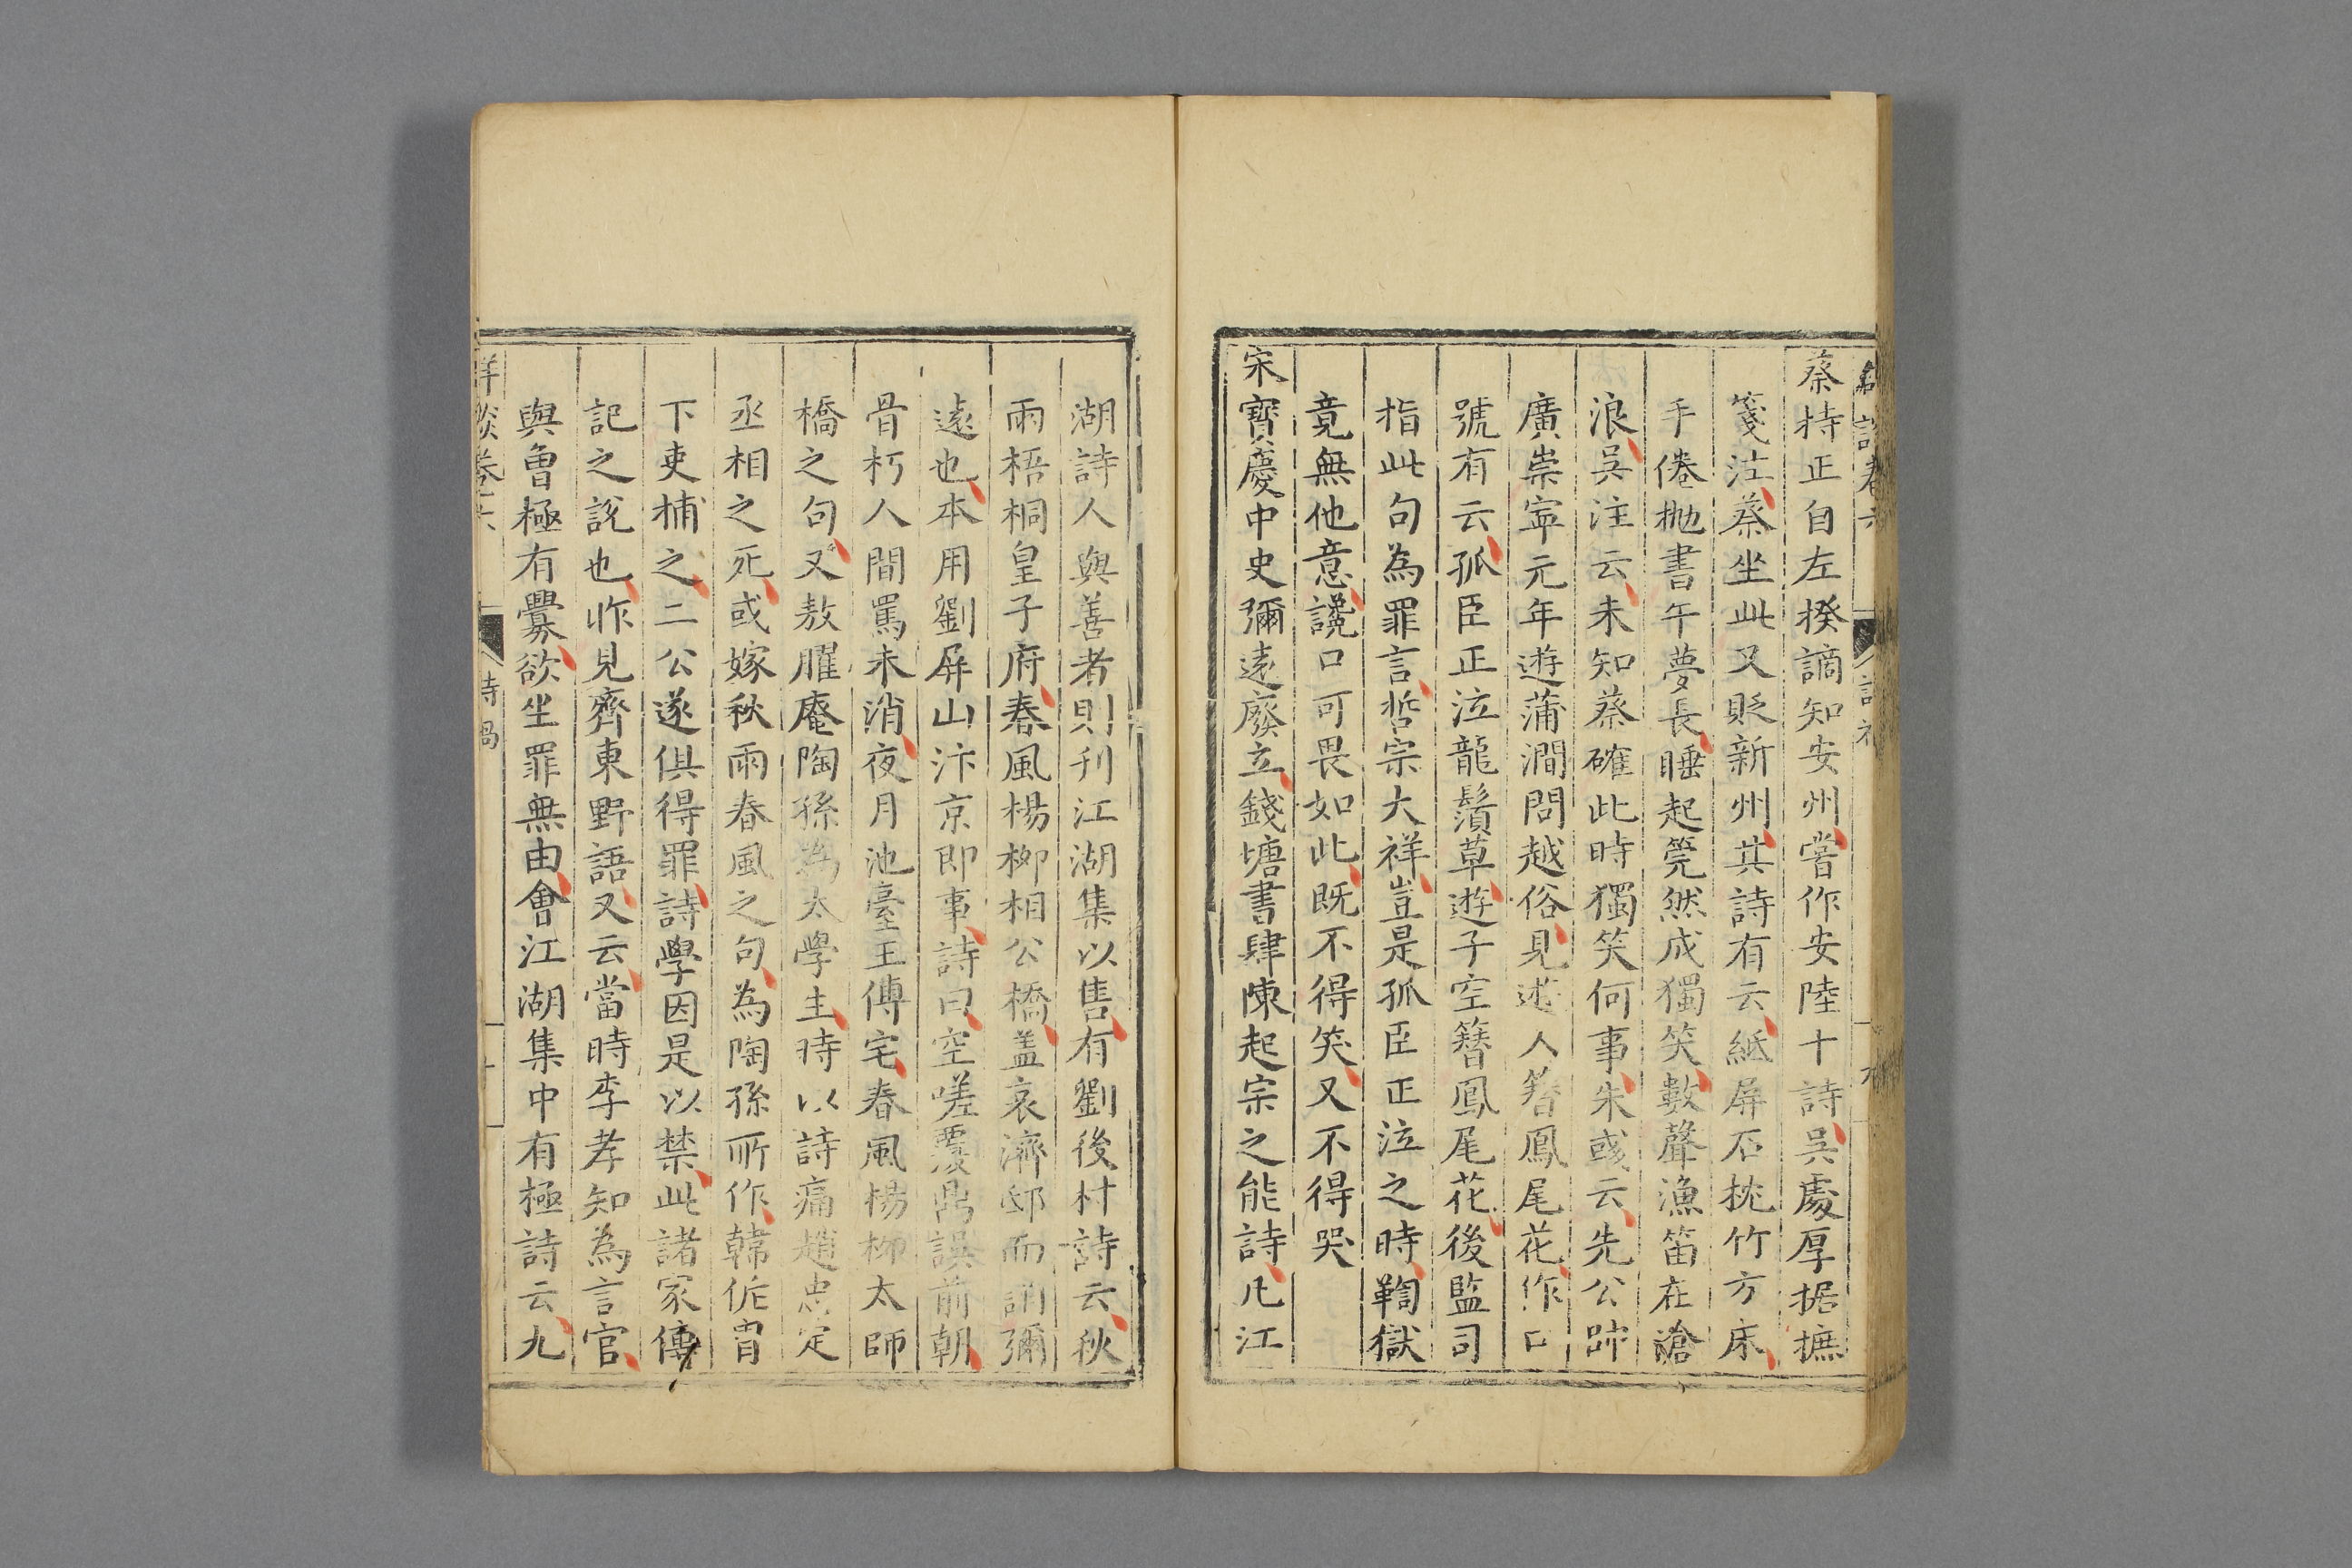 蔡持正自左揆謫知安州嘗作安陸十詩吳處厚捃摭
箋注蔡坐此又貶新州其詩有云紙屏石枕竹方床
手倦拋書午夢長睡起筦然成獨笑數聲漁笛在滄
浪吳注云未知蔡確此時獨笑何事朱彧云先公帥
廣崇寧元年遊蒲澗問越俗見遊人簪鳳尾花作口
號有云孤臣正泣龍鬚草遊子空簪鳳尾花後監司
指此句為罪言哲宗大祥豈是孤臣正泣之時鞫獄
竟無他意讒口可畏如此既不得笑又不得哭
宋寶慶中史彌遠廢立錢塘書肆陳起宗之能詩凡江
湖詩人與善者則刊江湖集以售有劉後村詩云秋
雨梧桐皇子府春風楊柳相公橋盖哀濟邸而誚彌
遠也本用劉屏山汴京即事詩曰空嗟覆鼎誤前朝
骨朽人間罵未消夜月池臺王傅宅春風楊柳太師
橋之句又敖臞庵陶孫為太學生時以詩痛趙忠定
丞相之死或嫁秋雨春風之句為陶孫所作韓侂胄
下吏捕之二公遂俱得罪詩學因是以禁此諸家傳
記之說也昨見齊東野語又云當時李孝知為言官
與曾極有釁欲坐罪無由會江湖集中有極詩云九
詩禍